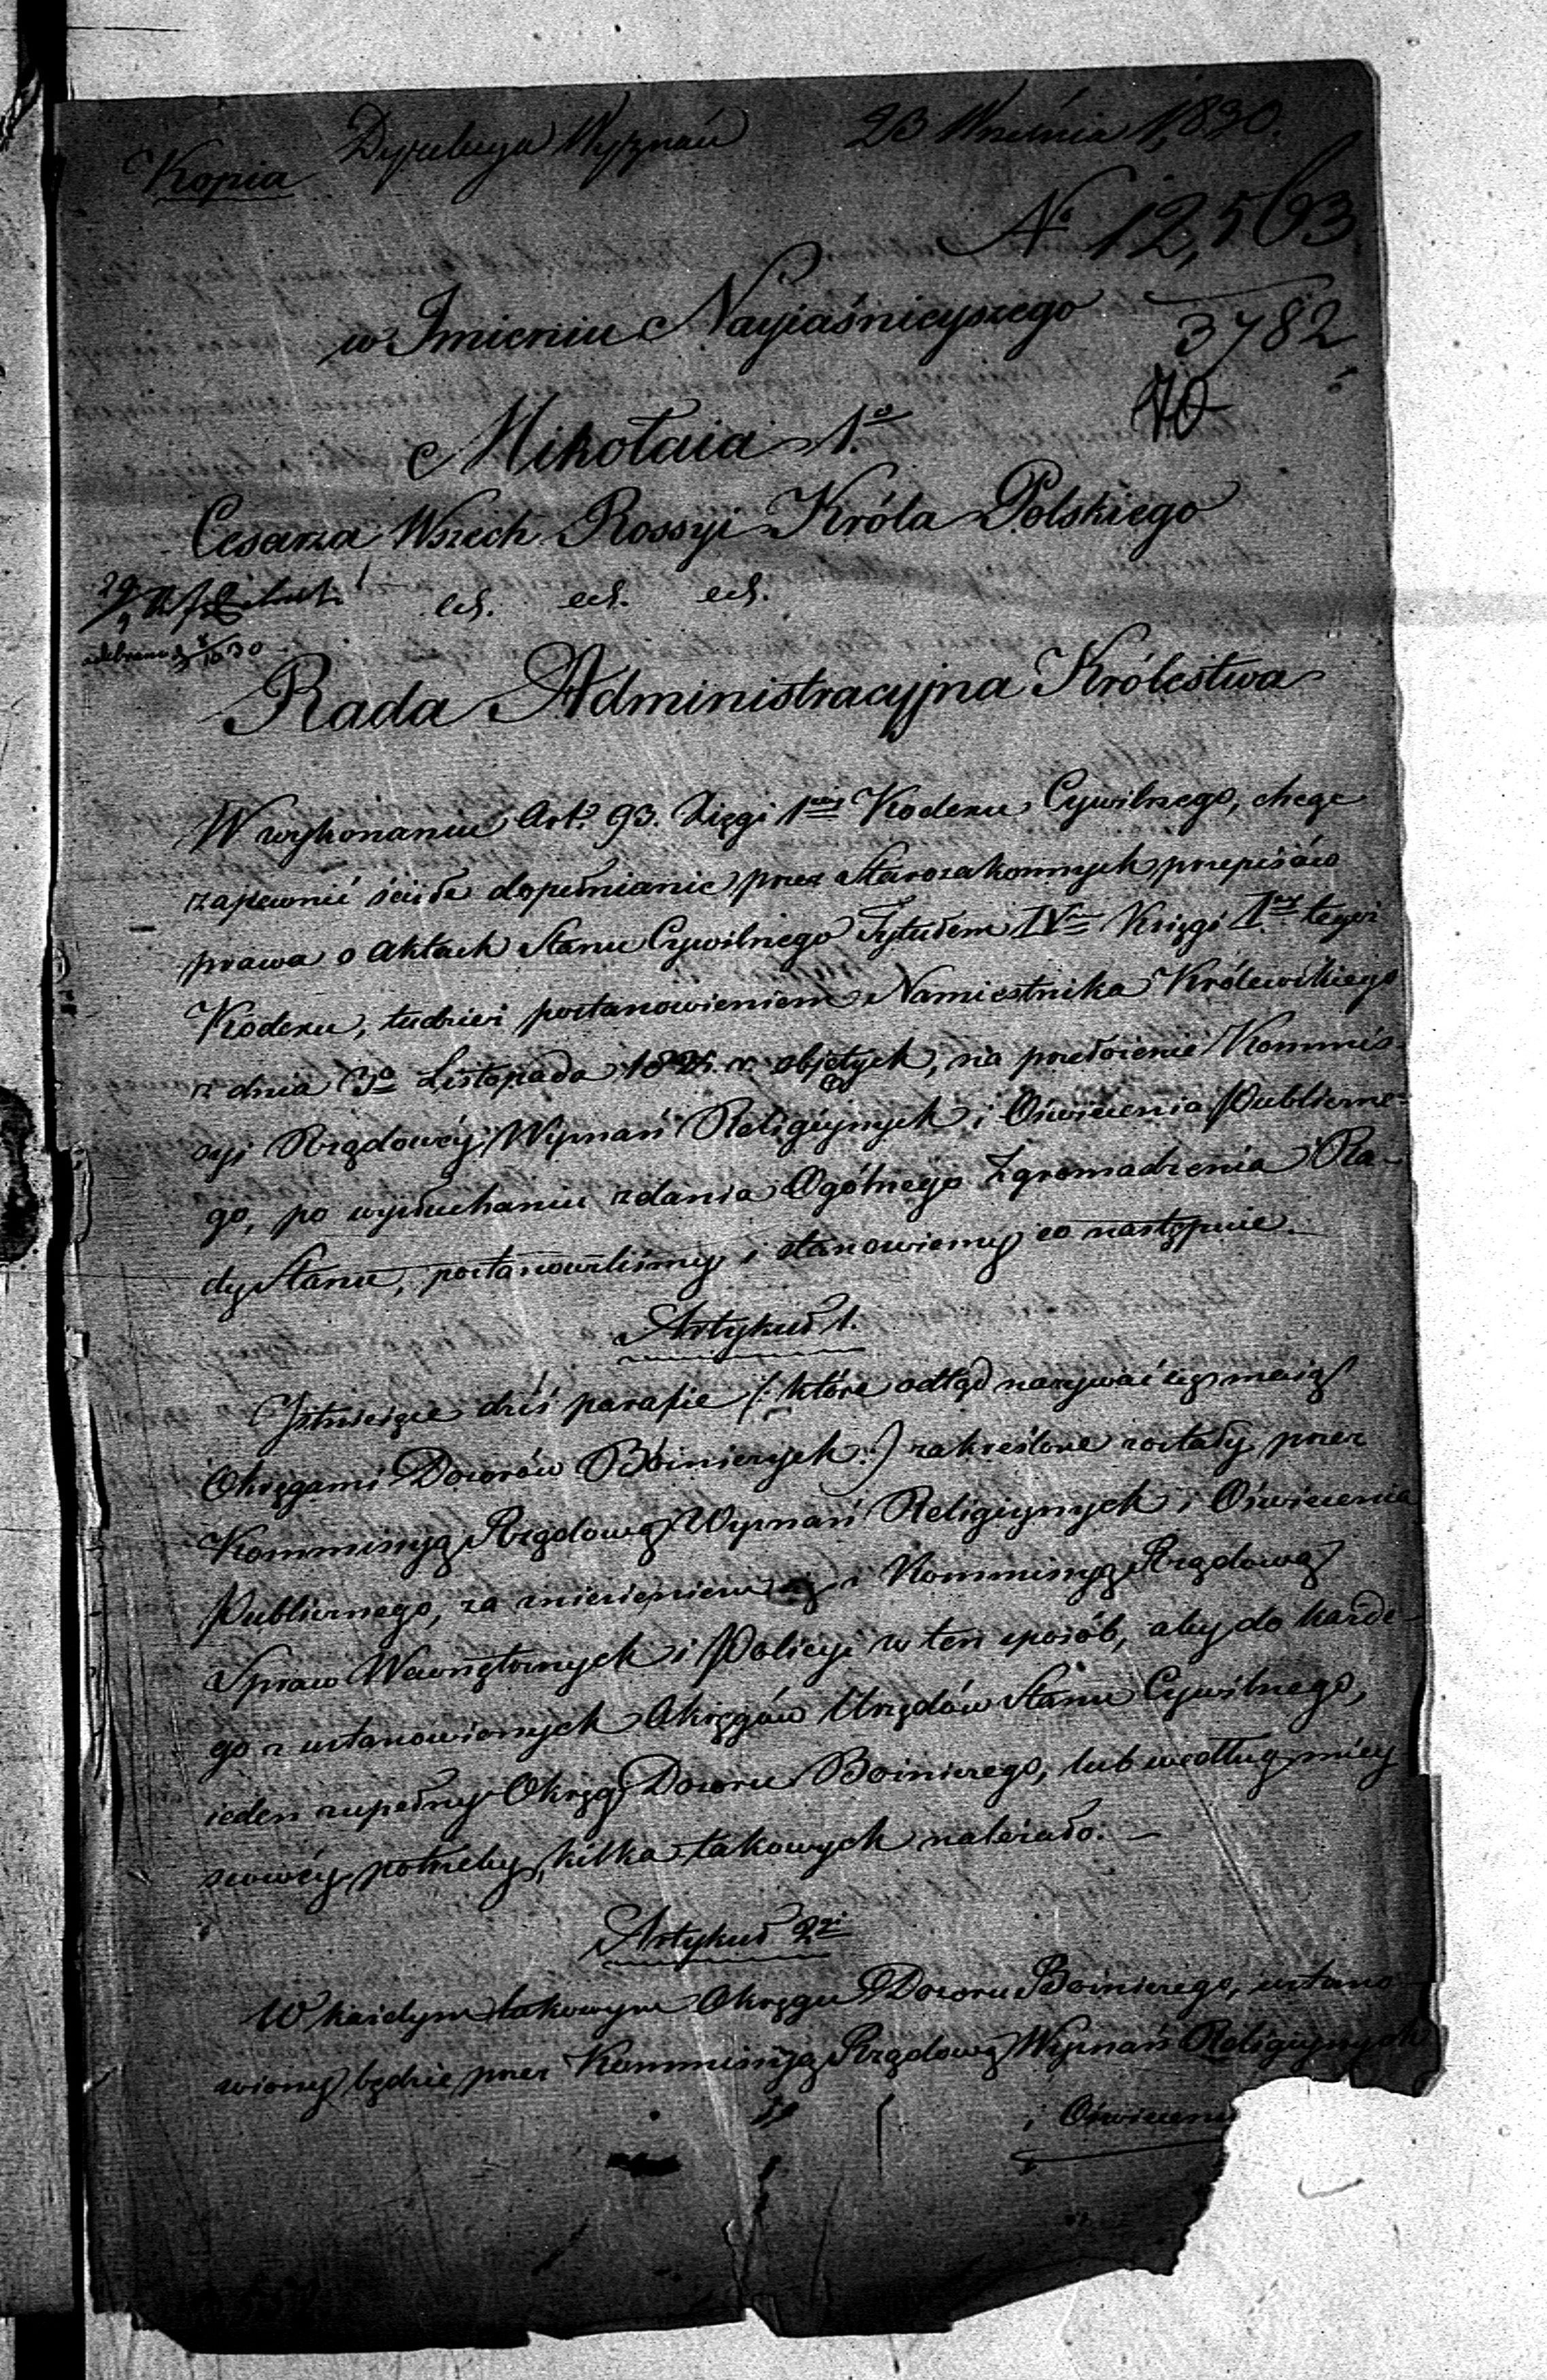 Kopia
Dyrekcya Wyznań 23 Września 1830.
Nº 12,593
3782
70
w Imieniu Nayiaśnieyszego
Mikołaia 1º
Cesarza Wszech Rossyi Króla Polskiego
etc. etc. etc.
odebrano d 4/10 30
Rada Administracyjna Królestwa
W wykonaniu Artº 93. Xięgi 1wszej Kodexu Cywilnego, chcąc
zapewnić ścisłe dopełnianie przez Starozakonnych przepisów
prawa o aktach Stanu Cywilnego Tytułem IVm Księgi I tegoż
Kodexu, tudzież postanowieniem Namiestnika Królewskiego
z dnia 3º Listopada 1825. r. objętych, na przełożenie Kommis-
syi Rządowéy Wyznań Religiynych i Oświecenia Publiczne-
go, po wysłuchaniu zdania Ogólnego Zgromadzenia Ra-
dy Stanu, postanowiliśmy i stanowiemy co następuie.
Artykuł 1.
Istnieiące dziś parafie (: które odtąd nazywać się maią
Okręgami Dozorów Bóżniczych :) zakreślone zostały przez
Kommissyą Rządową Wyznań Religiynych i Oświecenia
Publicznego, za zniesieniem się z Kommissyą Rządową
Spraw Wewnętrznych i Policyi w ten sposób, aby do każde-
go z ustanowionych Okręgów Urzędów Stanu Cywilnego,
ieden zupełny Okręg Dozoru Bożniczego, lub według miey
scowéy potrzeby, kilka takowych należało. —
Artykuł 2gi
W każdym takowym Okręgu Dozoru Bożniczego, ustano-
wiony będzie przez Kommissyą Rządową Wyznań Religiynych
i Oświeceni